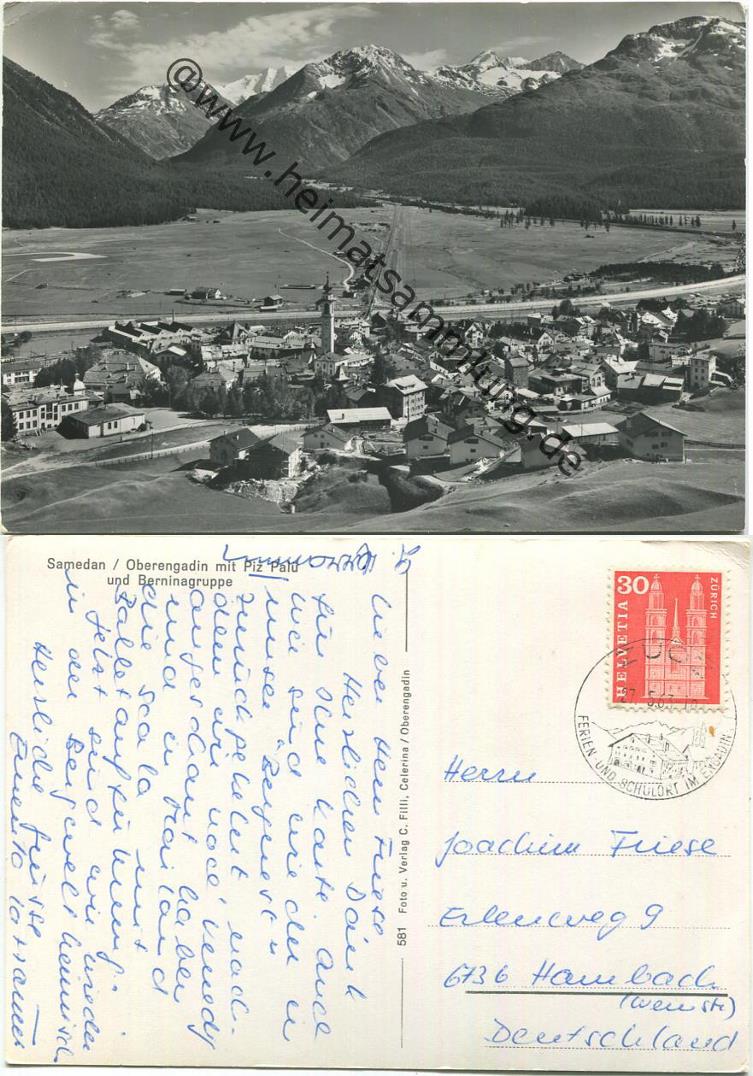 @www.heimatsammlung.de
Samedan / Oberengadin mit Piz Palü
und Berninagruppe
581 Foto u. Verlag C. Filli, Celerina / Oberengadin
30
HELVETIA
ZÜRICH
ZUOZ
FERIEN UND SCHULORT IM ENGADIN
Lieber Herr Friese
Herzlichen Dank
für Ihre Karte. Auch
wir sind wieder in
unser "Bergnest"
zurückgekehrt, nach-
dem wir noch Venedig
angeschaut haben
und in Mailand
die Scala mit
Ballettaufführung.
Jetzt sind wir wieder
in der Bergwelt heimisch.
Herzliche Grüsse
Herrn
Joachim Friese
Erlenweg 9
6736 Hambach
(Weinstr)
Deutschland